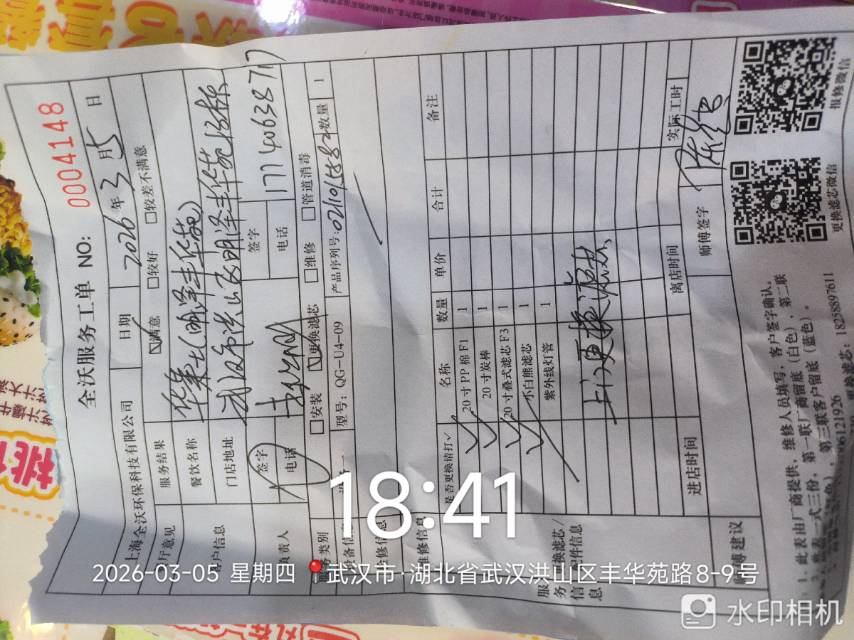 全沃服务工单 NO: 0004148
上海全沃环保科技有限公司 日期 2026年3月5日
服务结果 ☑满意 □较好 □较差不满意
餐饮名称 华莱士(明泽丰华苑)
门店地址 武汉市洪山区明泽丰华苑
签字 签字
电话 电话 17140638717
□安装 ☑更换滤芯 □维修 □管道消毒
型号: QG-U4-09 产品序列号: 数量 1
是否更换请打✓ 名称 数量 单价 合计 备注
✓ 20寸PP棉F1 1
✓ 20寸炭棒 1
✓ 20寸叠式滤芯F3 1
✓ 不白熊滤芯 1
紫外线灯管 1
上门更换滤芯
进店时间 离店时间 实际工时
师傅建议 师傅签字
1、此表由厂商提供,维修人员填写,客户签字确认。
一式三份,第一联厂商留底(白色),第二联
第三联客户留底(蓝色)。
18258897611
更换滤芯微信
报修微信
18:41
2026-03-05 星期四 武汉市·湖北省武汉洪山区丰华苑路8-9号
水印相机